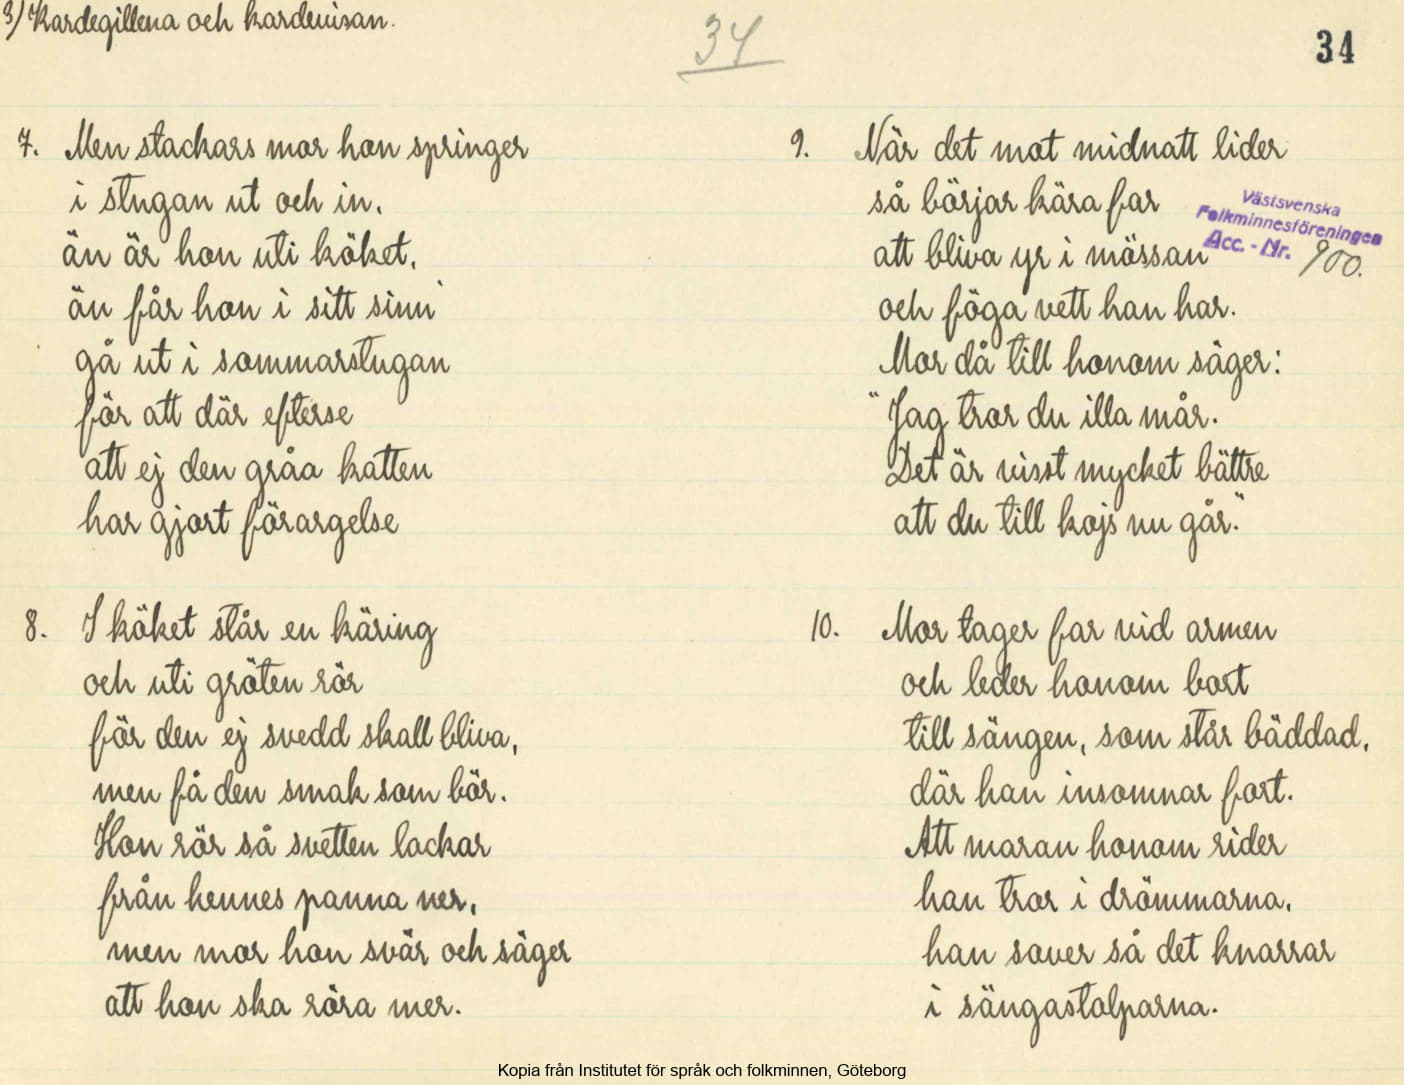 3) Kardegillena och kardevisan.
34
34
7. Men stackars mor hon springer
i stugan ut och in,
än är hon uti köket,
än får hon i sitt sinn'
gå ut i sommarstugan
för att där efterse
att ej den gråa katten
har gjort förargelse
8. I köket står en käring
och uti gröten rör
för den ej svedd skall bliva,
men få den smak som bör.
Hon rör så svetten lackar
från hennes panna ner,
men mor hon svär och säger
att hon ska röra mer.
9. När det mot midnatt lider
så börjar kära far
att bliva yr i mössan
och föga vett han har.
Mor då till honom säger:
"Jag tror du illa mår.
Det är visst mycket bättre
att du till kojs nu går."
Västsvenska
Folkminnesföreningen
Acc. - Nr. 900.
10. Mor tager far vid armen
och leder honom bort
till sängen, som står bäddad,
där han insomnar fort.
Att maran honom rider
han tror i drömmarna,
han sover så det knarrar
i sängastolparna.
Kopia från Institutet för språk och folkminnen, Göteborg